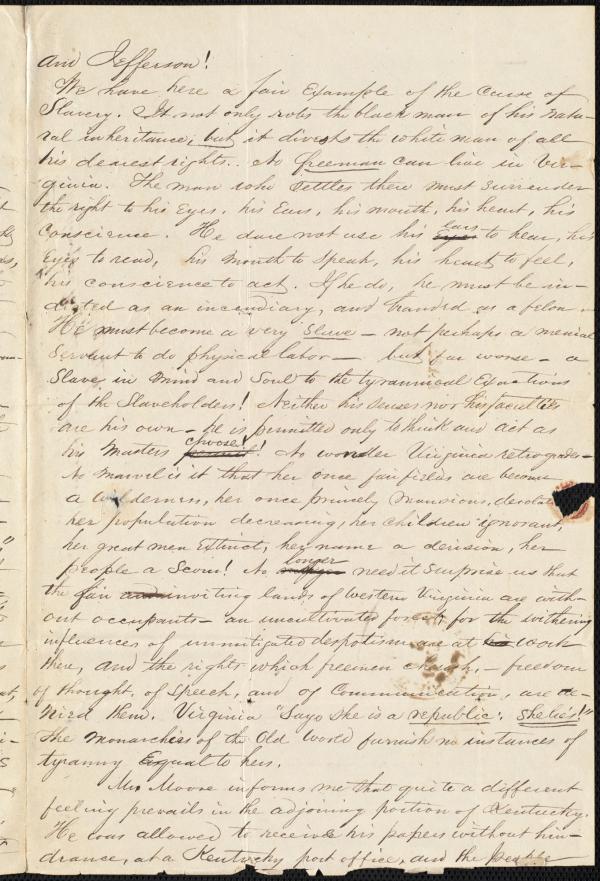 and Jefferson!
We have here a fair Example of the Curse of
Slavery. It not only robs the black man of his natu-
ral inheritance, but it divests the white man of all
his dearest rights. No freeman can live in Vir-
ginia. The man who settles there must surrender
the right to his Eyes, his Ears, his mouth, his heart, his
Conscience. He dare not use his ears to hear, his
Eyes to read, his mouth to speak, his heart to feel,
his conscience to act. If he do, he must be in-
dicted as an incendiary, and branded as a felon.
He must become a very slave — not perhaps a menial
Servant to do physical labor — but far worse — a
Slave in mind and Soul to the tyrannical Exactions
of the Slaveholders! Neither his senses nor his faculties
are his own — he is permitted only to think and act as
his Masters choose! No wonder Virginia retrogrades —
No marvel is it that her once fair fields are become
a wilderness, her once princely Mansions, desolate
her population decreasing, her children ignorant,
her great men Extinct, her name a derision, her
people a Scorn! No longer need it surprise us that
the fair inviting lands of western Virginia are with-
out occupants — an uncultivated forest, for the withering
influences of unmitigated despotism are at work
there, and the rights which freemen cherish, — freedom
of thought, of Speech, and of Communication, are de-
nied them. Virginia "Says she is a republic; She lies!"
The Monarchies of the Old World furnish no instances of
tyranny Equal to hers.
Mr. Moore informs me that quite a different
feeling prevails in the adjoining portion of Kentucky.
He was allowed to receive his papers without hin-
drance, at a Kentucky post office, and the people